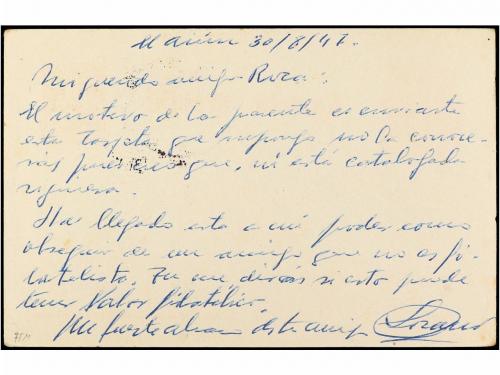 El Aiún 30/8/47.
Mi querido amigo Roca:
El motivo de la presente es enviarte
esta tarjeta que supongo no la conoce-
rás pues creo que, ni está catalogada
siquiera.
Ha llegado esta a mi poder como
obsequio de un amigo que no es fi-
latelista. Tu me dirás si esto puede
tener valor filatélico.
Un fuerte abrazo de tu amigo
75M